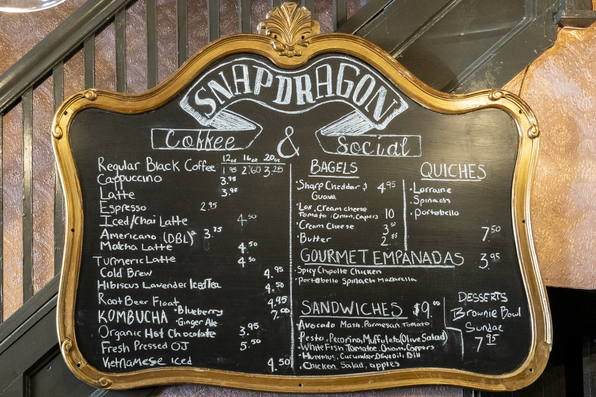 SNAPDRAGON
Coffee & Social
12oz 16oz 20oz
Regular Black Coffee 1.95 2.60 3.25
Cappuccino 3.95
Latte 3.95
Espresso 2.95
Iced/Chai Latte 4.50
Americano (DBL) 3.75
Matcha Latte 4.50
Turmeric Latte 4.50
Cold Brew 4.95
Hibiscus Lavender Iced Tea 4.50
Root Beer Float 4.95
KOMBUCHA · Blueberry 7.00
· Ginger Ale
Organic Hot Chocolate 3.95
Fresh Pressed OJ 5.50
Vietnamese Iced 4.50
BAGELS
· Sharp Cheddar & Guava 4.95
· Lox, Cream cheese
Tomato, Onion, Capers 10
· Cream Cheese 3.50
· Butter
QUICHES
· Lorraine
· Spinach
· Portobello
7.50
GOURMET EMPANADAS 3.95
· Spicy Chipotle Chicken
· Portobello Spinach Mozzarella
SANDWICHES $9.00
· Avocado Mash, Parmesan, Tomato
· Pesto, Pecorino, Muffulata (Olive Salad)
· White Fish Tomatoe, Onion, Cappers
· Hummus, Cucumber, Dill
· Chicken Salad, apples
DESSERTS
Brownie Bowl
Sundae
7.95